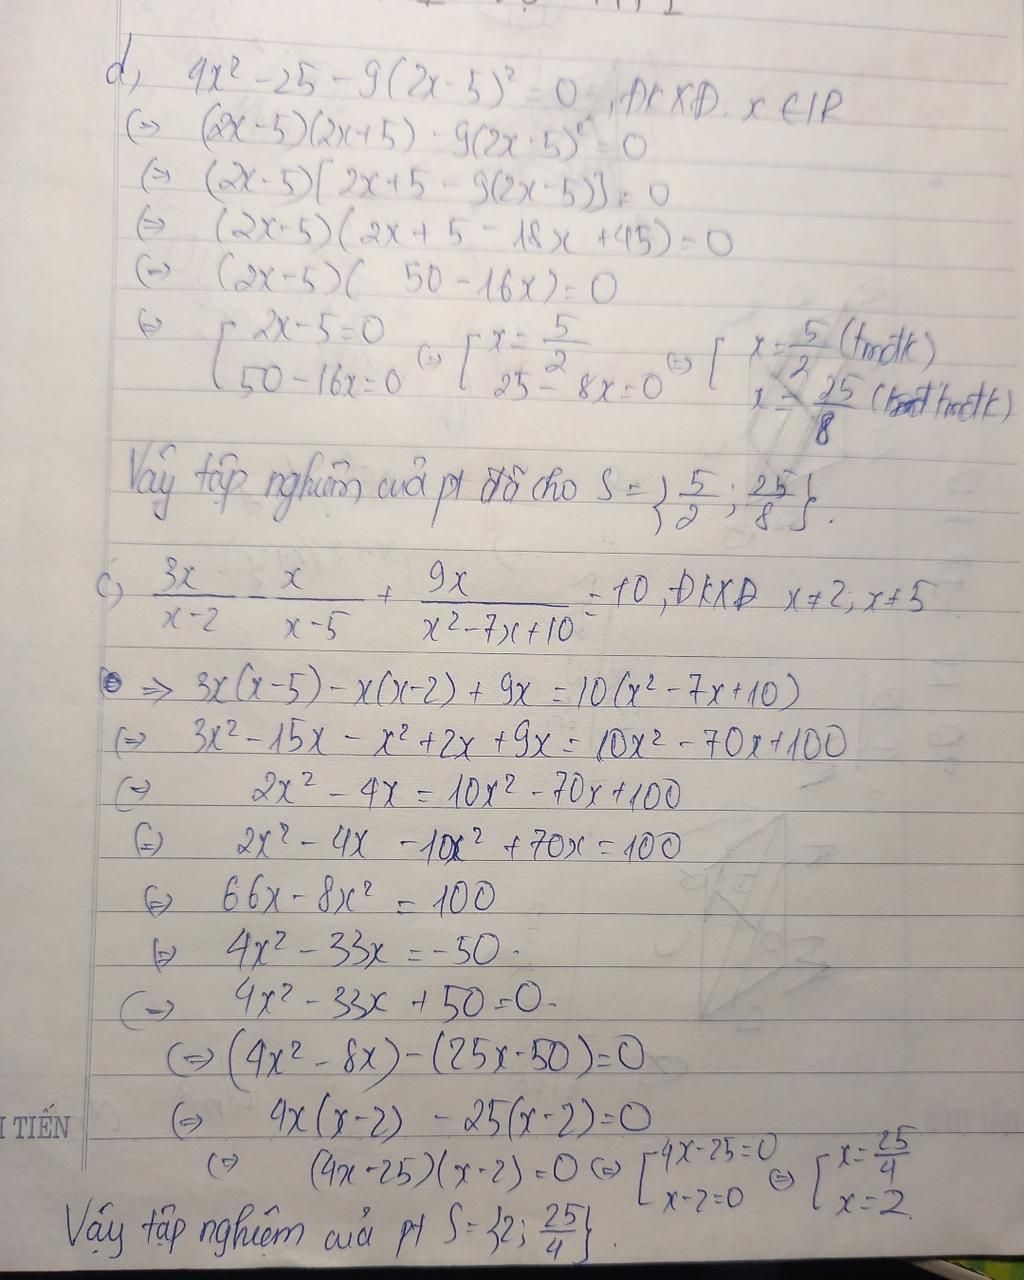 d, 4x² - 25 - 9(2x-5)² = 0, ĐKXĐ. x ∈ IR
(=) (2x-5)(2x+5) - 9(2x-5)² = 0
(=) (2x-5)[2x+5 - 9(2x-5)] = 0
(=) (2x-5)(2x+5 - 18x + 45) = 0
(=) (2x-5)( 50 - 16x) = 0
(=) [ 2x-5=0 ; 50-16x=0 (=) [ x = 5/2 ; 25 - 8x = 0 (=) [ x = 5/2 (tmđk) ; x = 25/8 (tmđk)
Vậy tập nghiệm của pt đã cho S = {5/2 ; 25/8}.
c) 3x/(x-2) - x/(x-5) + 9x/(x²-7x+10) = 10, ĐKXĐ x ≠ 2; x ≠ 5
=> 3x(x-5) - x(x-2) + 9x = 10(x² - 7x+10)
(=) 3x² - 15x - x² + 2x + 9x = 10x² - 70x + 100
(=) 2x² - 4x = 10x² - 70x + 100
(=) 2x² - 4x - 10x² + 70x = 100
(=) 66x - 8x² = 100
(=) 4x² - 33x = -50.
(=) 4x² - 33x + 50 = 0.
(=) (4x² - 8x) - (25x - 50) = 0
(=) 4x(x-2) - 25(x-2) = 0
I TIẾN
(=) (4x-25)(x-2) = 0 (=) [ 4x-25=0 ; x-2=0 (=) [ x = 25/4 ; x = 2
Vậy tập nghiệm của pt S = {2; 25/4}.